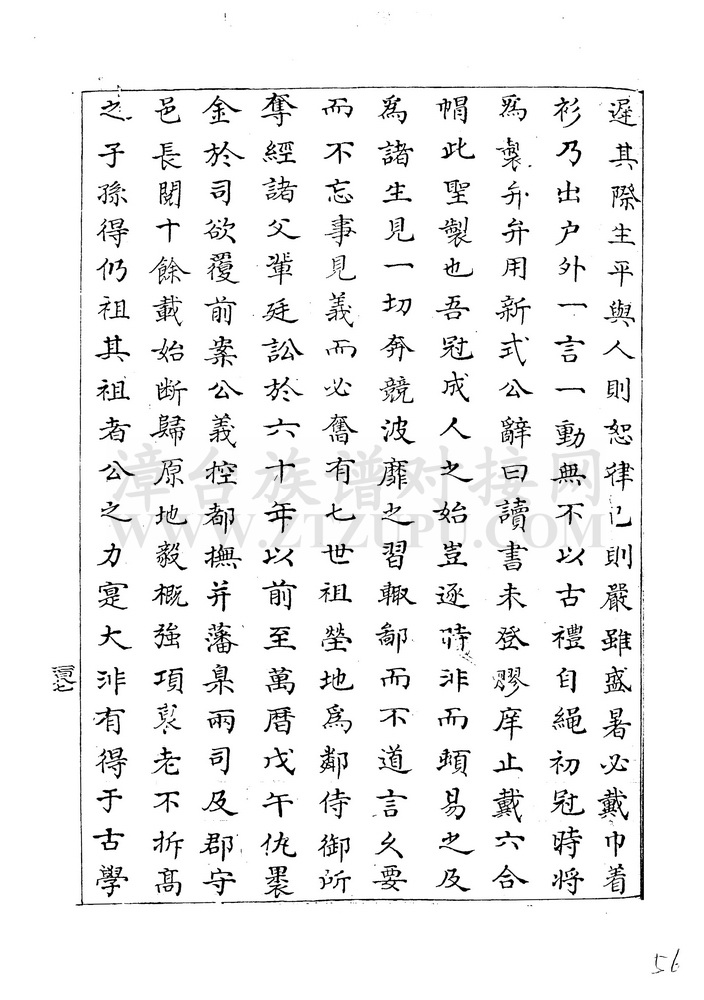 遲其際生平與人則恕律己則嚴雖盛暑必戴巾着
衫乃出户外一言一動無不以古禮自繩初冠時將
爲製弁弁用新式公辭曰讀書未登膠庠止戴六合
帽此聖製也吾冠成人之始豈逐時非而頓易之及
爲諸生見一切奔競波靡之習輙鄙而不道言久要
而不忘事見義而必奮有七世祖塋地爲鄰侍御所
奪經諸父輩廷訟於六十年以前至萬曆戊午仇褁
金於司欲覆前案公義控都撫并藩臬兩司及郡守
邑長閱十餘載始断歸原地毅概強項衰老不拆高
之子孫得仍祖其祖者公之力寔大非有得于古學
漳台族谱对接网
WWW.ZTZUPU.COM
56